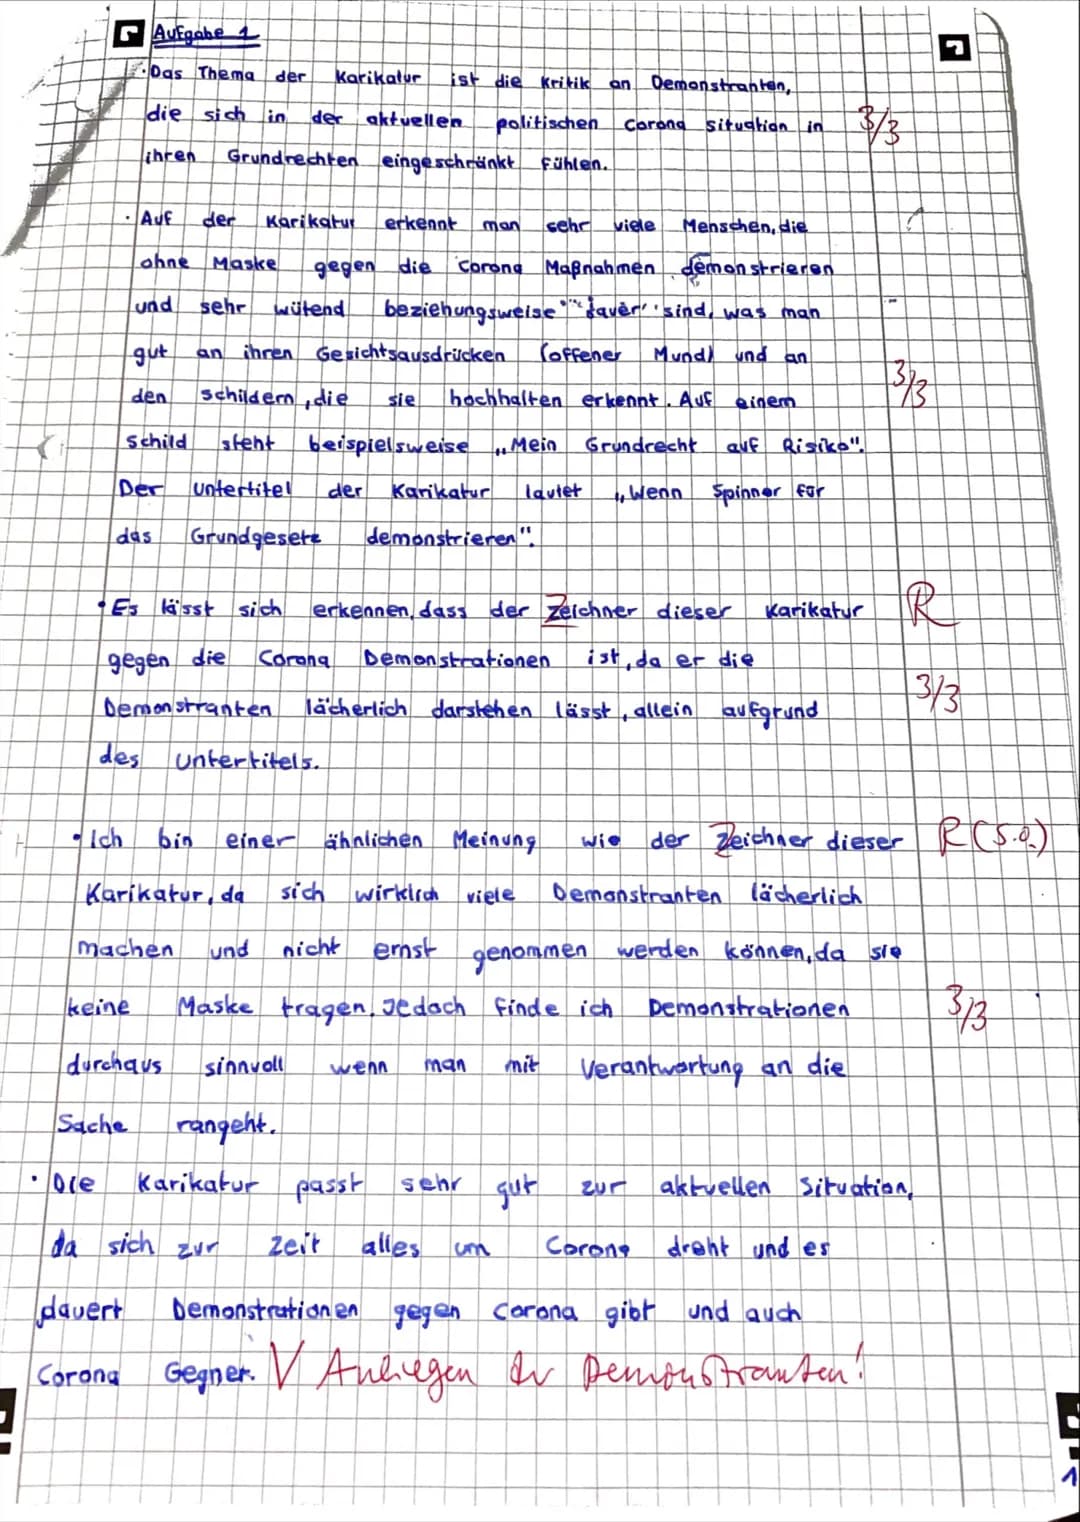 Aufgabe 1
• Das Thema der Karikatur ist die Kritik an Demonstranten,
die sich in der aktuellen politischen Corona situation in 3/3
ihren Grundrechten eingeschränkt fühlen.
• Auf der Karikatur erkennt man sehr viele Menschen, die
ohne Maske gegen die Corona Maßnahmen demonstrieren
und sehr wütend beziehungsweise sauer sind, was man
gut an ihren Gesichtsausdrücken (offener Mund) und an
den schildern, die sie hochhalten erkennt. Auf einem 3/3
Schild steht beispielsweise „Mein Grundrecht auf Risiko".
Der Untertitel der Karikatur lautet „Wenn Spinner für
das Grundgesetz demonstrieren".
• Es lässt sich erkennen, dass der Zeichner dieser Karikatur R
gegen die Corona Demonstrationen ist, da er die
Demonstranten lächerlich darstehen lässt, allein aufgrund 3/3
des Untertitels.
• Ich bin einer ähnlichen Meinung wie der Zeichner dieser R (s.o.)
Karikatur, da sich wirklich viele Demonstranten lächerlich
machen und nicht ernst genommen werden können, da sie
keine Maske tragen. Jedoch finde ich Demonstrationen 3/3
durchaus sinnvoll wenn man mit Verantwortung an die
Sache rangeht.
• Die Karikatur passt sehr gut zur aktuellen Situation,
da sich zur zeit alles um Corona dreht und es
dauert Demonstrationen gegen Corona gibt und auch
Corona Gegner. V Anliegen der Demonstranten!
1